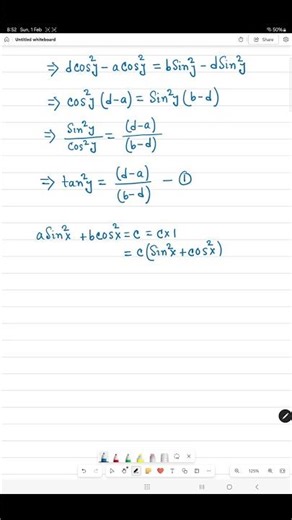 8:52 Sun, 1 Feb
50%
Untitled whiteboard
⇒ dcos²y - acos²y = bSin²y - dSin²y
⇒ cos²y (d-a) = Sin²y (b-d)
⇒ Sin²y/cos²y = (d-a)/(b-d)
⇒ tan²y = (d-a)/(b-d) - ①
aSin²x + bcos²x = c = c×1
= c(Sin²x + cos²x)